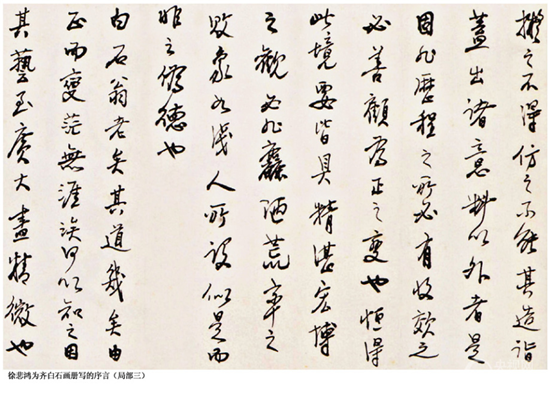 擬之不得仿之不能其造詣
蓋出諸意料以外者是
固非歷程之所必有收效之
必善顧為正之變也恒得
此境要皆具精湛宏博
之觀必非麤陋荒率之
敗象如淺人所設似是而
非之偽德也
白石翁老矣其道幾矣由
正而變茫無涯涘何以知之因
其藝至廣大盡精微也
徐悲鸿为齐白石画册写的序言（局部三）